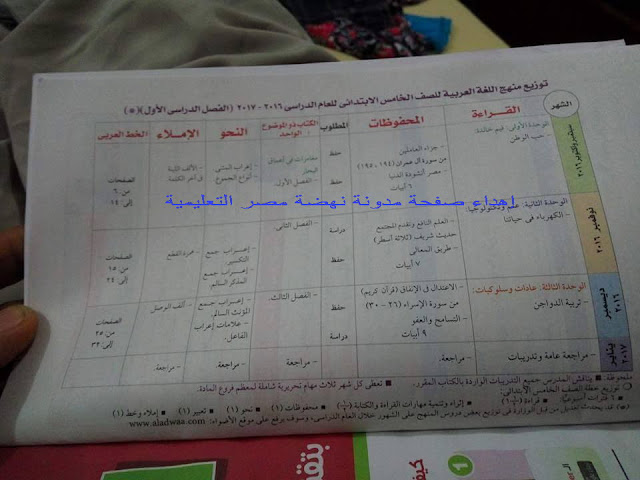 توزيع منهج اللغة العربية للصف الخامس الابتدائى للعام الدراسى ٢٠١٦ - ٢٠١٧ (الفصل الدراسى الأول)(*)
الشهر القــراءة المحفوظات المطلوب الكتاب ذو الموضوع الواحد النحو الإملاء الخط العربى
سبتمبر وأكتوبر ٢٠١٦
الوحدة الأولى: قيم خالدة
- حب الوطن
- جزاء العاملين
من سورة آل عمران (١٩٤، ١٩٥)
- مصر أنشودة الدنيا
٦ أبيات
حفظ
حفظ
مغامرات فى أعماق البحار
- الفصل الأول.
- إعراب المثنى
- أنواع الجموع
- الألف اللينة
فى آخر الكلمة
الصفحات
من ٦
إلى ١٤
إهداء صفحة مدونة نهضة مصر التعليمية
نوفمبر ٢٠١٦
الوحدة الثانية: علم وتكنولوجيا.
- الكهرباء فى حياتنا
- العلم النافع وتقدم المجتمع
حديث شريف (ثلاثة أسطر)
- طريق المعالى
٧ أبيات
دراسة
حفظ
- الفصل الثانى.
- إعـراب جمع
التكسير.
- إعـراب جمع
المذكر السالم.
- همزة القطع
الصفحات
من ١٥
إلى ٢٤
ديسمبر ٢٠١٦
الوحدة الثالثة: عادات وسلوكيات.
- تربية الدواجن
- الاعتدال فى الإنفاق (قرآن كريم)
من سورة الإسراء (٢٦ - ٣٠)
- التسامح والعفو
٩ أبيات
حفظ
دراسة
- الفصل الثالث.
- إعـراب جمع
المؤنث السالم.
- علامات إعراب
الفاعل.
- ألف الوصل
الصفحات
من ٢٥
إلى ٣٢
يناير ٢٠١٧
- مراجعة عامة وتدريبات
- مراجعة.
- مراجعة
- مراجعة.
- مراجعة.
ملحوظة: يناقش المدرس جميع التدريبات الواردة بالكتاب المقرر. تعطى كل شهر ثلاث مهام تحريرية شاملة لمعظم فروع المادة.
توزيع حصة الصف الخامس الابتدائى:
www.aladwaa.com